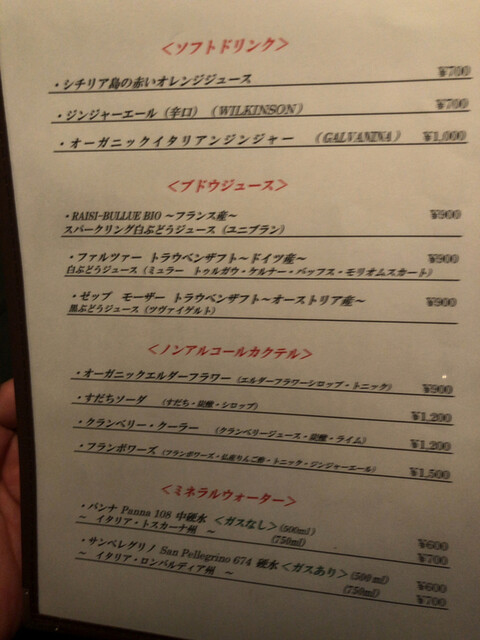 ＜ソフトドリンク＞
・シチリア島の赤いオレンジジュース ¥700
・ジンジャーエール（辛口）（WILKINSON） ¥700
・オーガニックイタリアンジンジャー （GALVANINA） ¥1,000
＜ブドウジュース＞
・RAISI-BULLUE BIO ～フランス産～ ¥900
スパークリング白ぶどうジュース（ユニブラン）
・ファルツァー トラウベンザフト～ドイツ産～ ¥900
白ぶどうジュース（ミュラー トゥルガウ・ケルナー・バッフス・モリオムスカート）
・ゼップ モーザー トラウベンザフト～オーストリア産～ ¥900
黒ぶどうジュース（ツヴァイゲルト）
＜ノンアルコールカクテル＞
・オーガニックエルダーフラワー（エルダーフラワーシロップ・トニック） ¥900
・すだちソーダ （すだち・炭酸・シロップ） ¥1,200
・クランベリー・クーラー （クランベリージュース・炭酸・ライム） ¥1,200
・フランボワーズ（フランボワーズ・弘前りんご酢・トニック・ジンジャーエール） ¥1,500
＜ミネラルウォーター＞
・パンナ Panna 108 中硬水 ＜ガスなし＞(500ml) ¥600
～ イタリア・トスカーナ州 ～ (750ml) ¥700
・サンペレグリノ San Pellegrino 674 硬水＜ガスあり＞(500ml) ¥600
～ イタリア・ロンバルディア州 ～ (750ml) ¥700